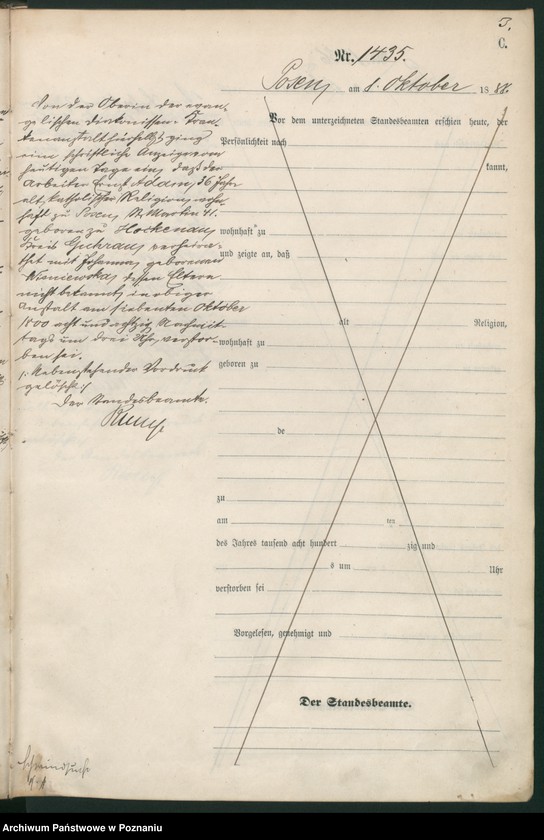 3.
C.
Nr. 1435.
Posen, am 8. Oktober 1888.
Von der Oberin der evan-
gelischen Diakonissen-Kran-
kenanstalt hierselbst ging
eine schriftliche Anzeige vom
heutigen Tage ein, daß der
Arbeiter Ernst Adam, 36 Jahre
alt, katholischer Religion, wohn-
haft zu Posen, St. Martin 41.
geboren zu Hockenau,
Kreis Guhrau, verheira-
thet mit Johanna geborenen
Wisniewska, dessen Eltern
nicht bekannt, in obiger
Anstalt am siebenten Oktober
1800 acht und achtzig Nachmit-
tags um drei Uhr, verstor-
ben sei.
/: Nebenstehender Vordruck
gelöscht :/
Der Standesbeamte.
Vor dem unterzeichneten Standesbeamten erschien heute, der
Persönlichkeit nach
kannt,
wohnhaft zu
und zeigte an, daß
alt Religion,
wohnhaft zu
geboren zu
de
zu
am ten
des Jahres tausend acht hundert zig und
s um Uhr
verstorben sei
Vorgelesen, genehmigt und
Der Standesbeamte.
Archiwum Państwowe w Poznaniu